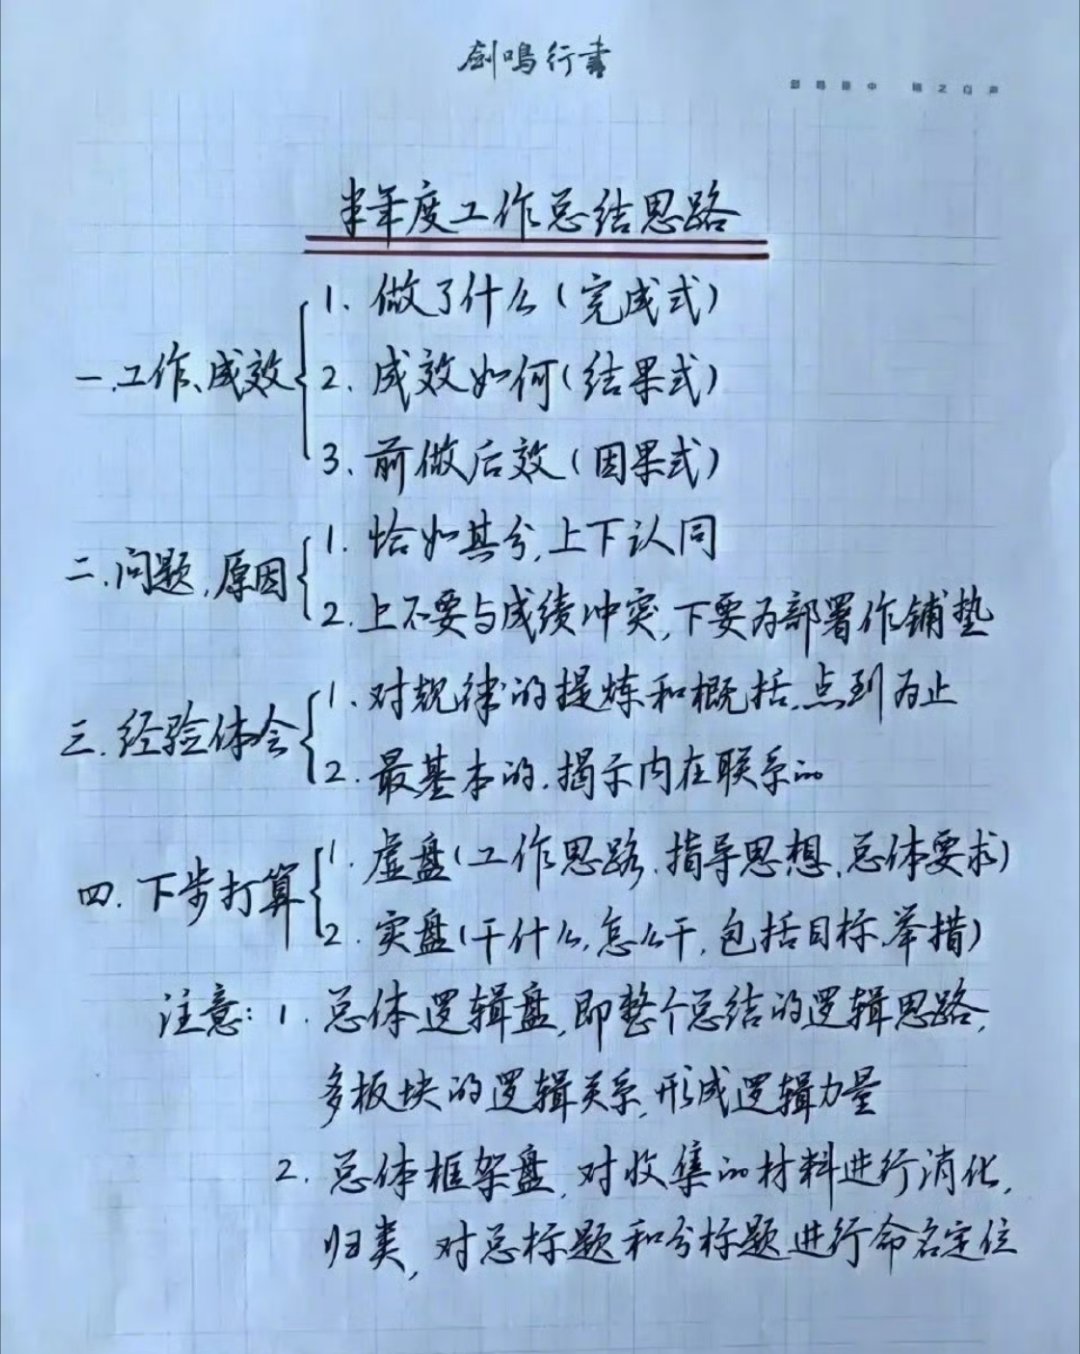 剑鸣行書
半年度工作总结思路
1. 做了什么(完成式)
一.工作、成效 2. 成效如何(结果式)
3. 前做后效(因果式)
1. 恰如其分,上下认同
二.问题,原因
2. 上不要与成绩冲突,下要为部署作铺垫
1. 对规律的提炼和概括,点到为止
三.经验体会
2. 最基本的.揭示内在联系的
1. 虚盘(工作思路.指导思想.总体要求)
四.下步打算
2. 实盘(干什么,怎么干,包括目标、举措)
注意: 1. 总体逻辑盘,即整个总结的逻辑思路,
多板块的逻辑关系,形成逻辑力量
2. 总体框架盘,对收集的材料进行消化,
归类,对总标题和分标题进行命名定位